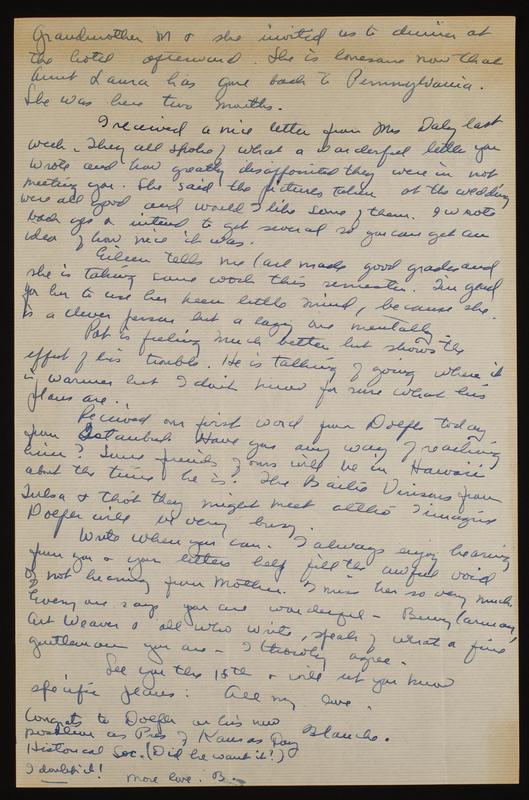 Grandmother M & she invited us to dinner at
the hotel afterward. She is lonesome now that
Aunt Laura has gone back to Pennsylvania.
She was here two months.
I received a nice letter from Mrs Daly last
week. They all spoke of what a wonderful letter you
wrote and how greatly disappointed they were in not
meeting you. She said the pictures taken at the wedding
were all good and would I like some of them. I wrote
back yes & intend to get several so you can get an
idea of how nice it was.
Eileen tells me Carl made good grades and
she is taking some work this semester. I'm glad
for her to use her keen little mind, because she
is a clever person but a lazy one mentally.
Pat is feeling much better but shows the
effect of his trouble. He is talking of going where it
is warmer but I don't know for sure what his
plans are.
Received our first word from Dolph today
from Istanbul. Have you any way of reaching
him? Some friends of ours will be in Hawaii
about the time he is. The Bailie Vinsons from
Tulsa & thot they might meet altho I imagine
Dolph will be very busy.
Write when you can. I always enjoy hearing
from you & your letters help fill the awful void
of not hearing from Mother. I miss her so very much.
Every one says you are wonderful -
Art Weaver & all who write, speak of what a fine
gentleman you are - I throwly agree.
See you the 15th & will let you know
specific plans. All my love,
Blanche.
Congrats to Dolph on his new
position as Pres of Kansas Day
Historical Soc. (Did he want it?)
I doubt it!
More love. B.